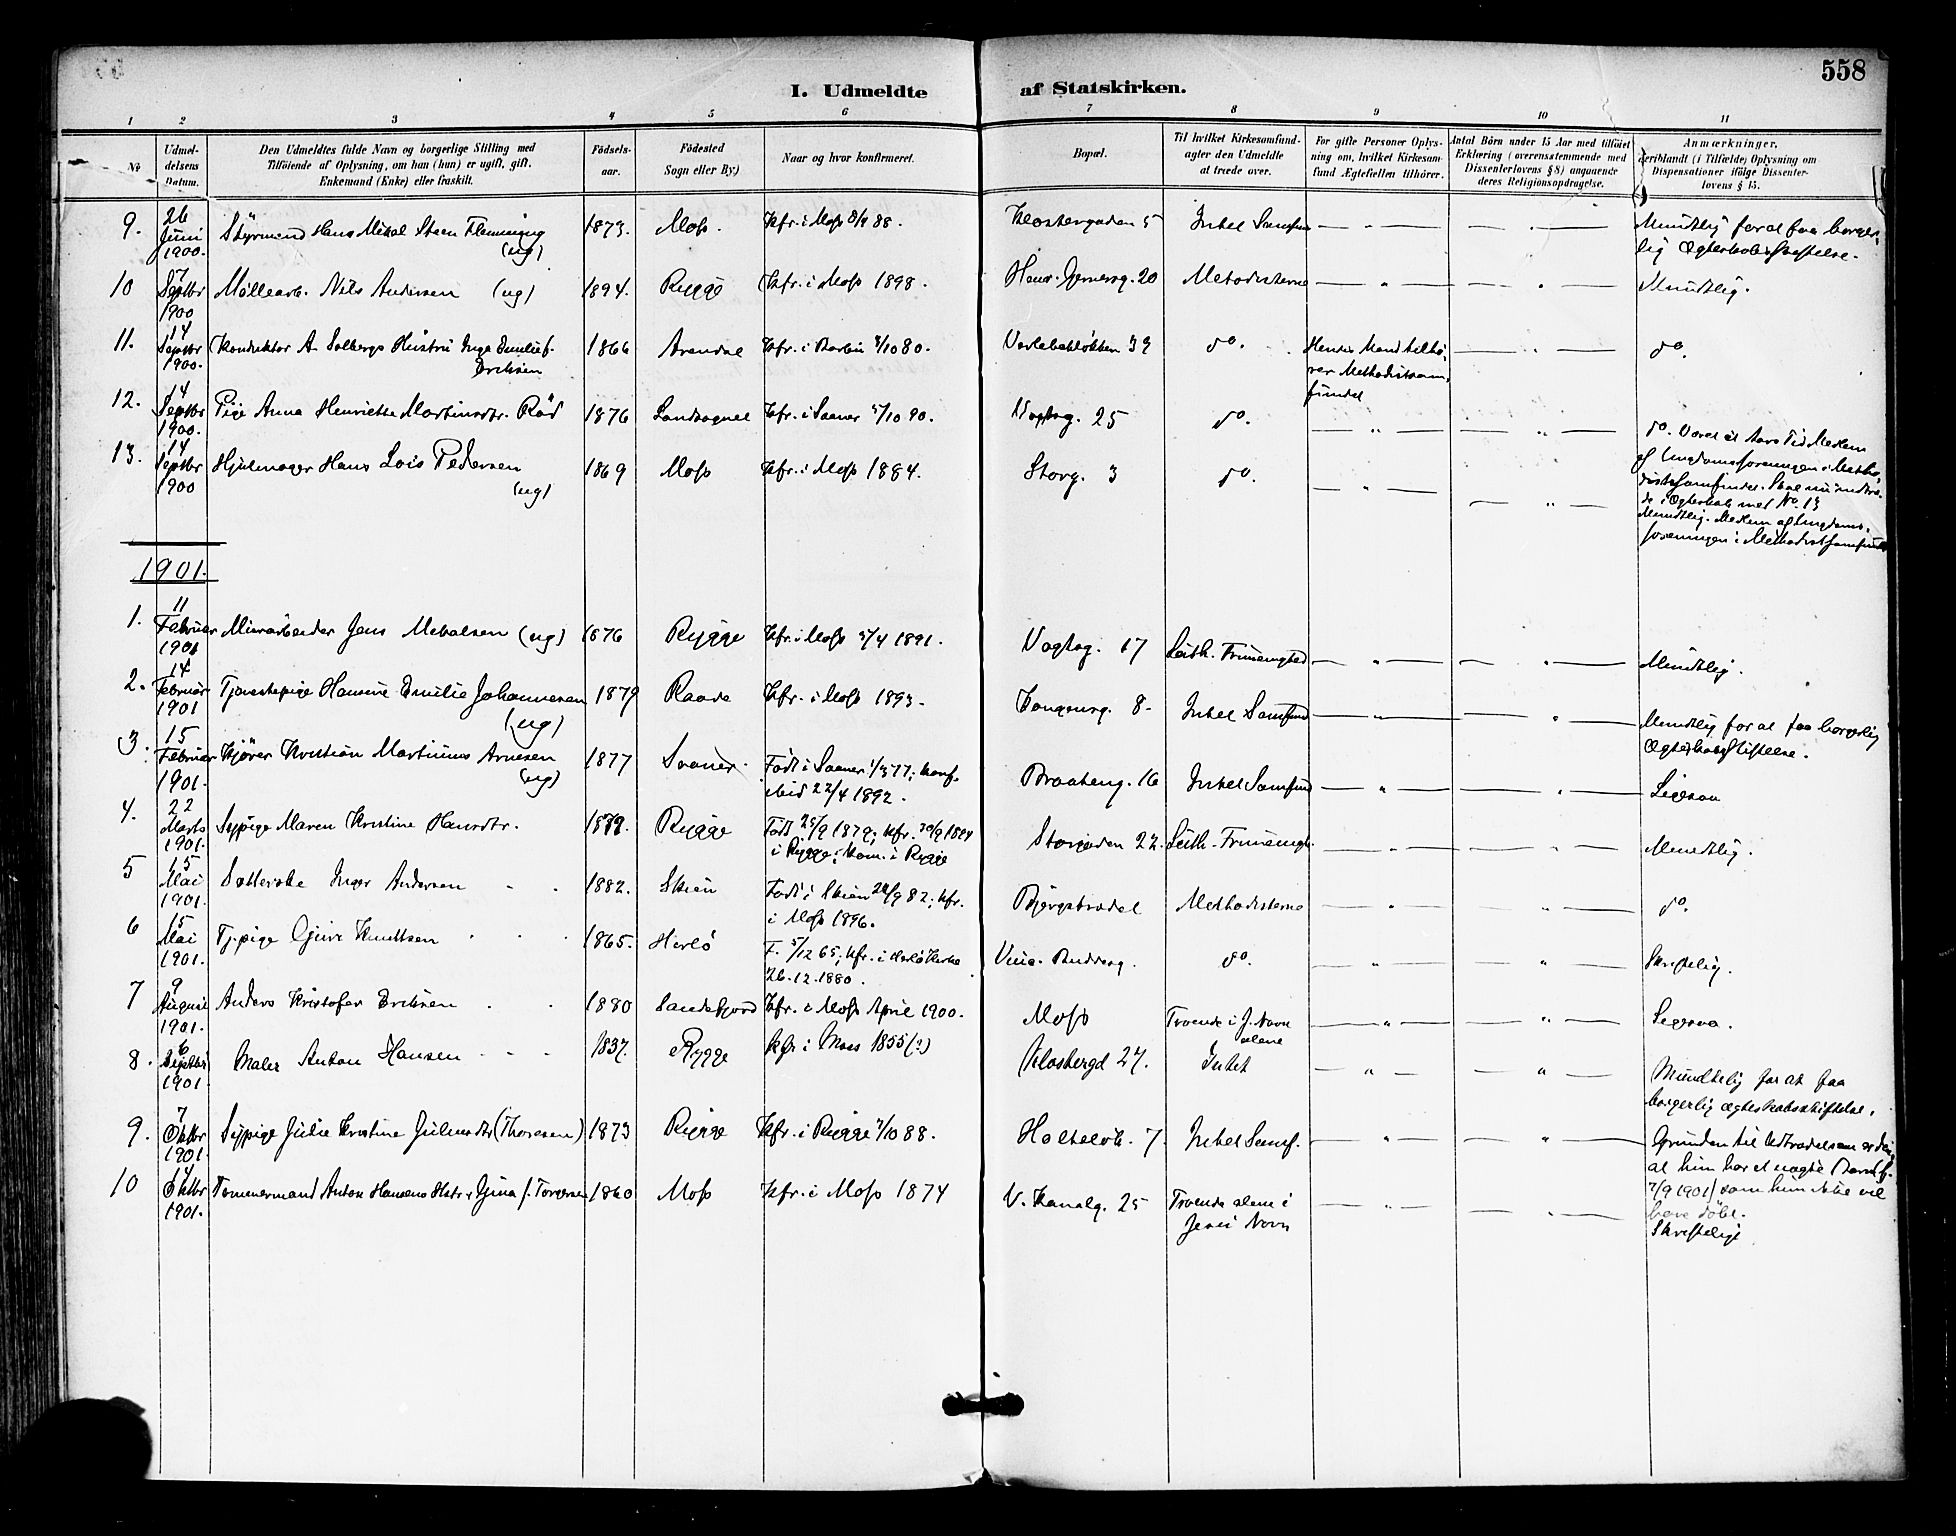 558
I. Udmeldte af Statskirken.
1 2 3 4 5 6 7 8 9 10 11
No
Udmeldelsens Datum.
Den Udmeldtes fulde Navn og borgerlige Stilling med
Tilföiende af Oplysning, om han (hun) er ugift, gift,
Enkemand (Enke) eller fraskilt.
Födselsaar.
Födested
Sogn eller By)
Naar og hvor konfirmeret.
Bopæl.
Til hvilket Kirkesamfund
agter den Udmeldte
at træde over.
For gifte Personer Oplys-
ning om, hvilket Kirkesam-
fund Ægtefællen tilhörer.
Antal Börn under 15 Aar med tilföiet
Erklæring (overensstemmende med
Dissenterlovens § 8) angaaende
deres Religionsopdragelse.
Anmærkninger,
deriblandt (i Tilfælde) Oplysning om
Dispensationer ifölge Dissenter-
lovens § 15.
9. 26 Juni 1900. Styrmand Hans Mikal Steen Flemming (ug) 1873. Moss. Kfr. i Moss 8/4 88. Klostergaden 5 Intet Samfund — " — — " — Mundtlig for at faa borger-
lig Ægteskabsstiftelse.
10 7 Septbr 1900 Möllearb. Nils Andersen (ug) 1894. Rygge Kfr. i Moss 1898. Henr. Gernersg. 20 Metodisterne — " — — " — Mundtlig.
11. 14 Septbr 1900. Konduktør A. Solbergs Hustru Inga Emilie f. Eriksen 1866 Arendal Kfr. i Barbu 3/10 80. Varlebakløkken 39 do. Hendes Mand tilhö-
rer Methodistsam-
fundet — " — do.
12. 14 Septbr 1900. Pige Anna Henriette Martinsdtr. Röd 1876 Landsognet Kfr. i Saaner 5/10 90. Vogtsg. 25 do. — " — — " — do. Været et Aars Tid Medlem
af Ungdomsforeningen i Metho-
distsamfundet. Skal nu indtræ-
de i Ægteskab med No. 13
13. 14 Septbr 1900 Hjulmager Hans Lois Pedersen (ug) 1869 Moss Kfr. i Moss 1884. Storg. 3 do. — " — — " — Mundtlig. Medlem af Ungdoms-
foreningen i Methodistsamfundet
1901.
1. 11 Februar 1901 Murarbeider Jens Mikalsen (ug) 1876 Rygge Kfr. i Moss 5/4 1891. Vogtsg. 17 Luth. Frimenighed — " — — " — Mundtlig.
2. 14 Februar 1901 Tjenestepige Hansine Emilie Johannesen (ug) 1879 Raade Kfr. i Moss 1893. Kongensg. 8. Intet Samfund — " — — " — Mundtlig for at faa borgerlig
Ægteskabsstiftelse.
3. 15 Februar 1901. Kjörer Kristian Martinius Arnesen (ug) 1877 Saaner. Födt i Saaner 1/3 77; konf.
ibid 22/4 1892. Braateng. 16 Intet Samfund — " — — " — Ligesaa
4. 22 Marts 1901. Sypige Maren Kristine Hansdtr. 1879. Rygge Födt 25/9 1879; kfr. 30/9 1894
i Rygge; kom. i Rygge Storgaden 22. Luth. Frimenigh. — " — — " — Mundtlig.
5 15 Mai 1901. Sætterske Inger Andersen 1882. Skien Födt i Skien 24/9 82; kfr.
i Moss 1896. Bjergstrædet Methodisterne — " — — " — do.
6 15 Mai 1901. Tj.pige Gjuri Knuttsen 1865. Herlö F. 5/12 65; kfr. i Herlö Kirke
26.12.1880. do. — " — — " — Skriftlig.
7 9 August 1901. Anders Kristofer Eriksen 1880 Sandefjord Kfr. i Moss April 1900. Moss Troende i J. Navn
alene — " — — " — Ligesaa.
8. 6 Septbr 1901 Maler Anton Hansen 1837. Rygge Kfr i Moss 1855 (?) Klostergd 27. Intet — " — — " — Mundtlig for at faa
borgerlig ægteskabsstiftelse.
9. 7 Oktbr 1901 Sypige Julie Kristine Julinsdtr (Thoresen) 1873 Rygge Kfr. i Rygge 7/10 88. Holtelök. 7. Intet Samf. — " — — " — Grunden til Udtrædelsen er den,
at hun har et uægte Barn (f.
7/9 1901) som hun ikke vil
have döbt.
10 14 Oktbr 1901. Tömmermand Anton Hansens Hstr. Gina f. Torgersen 1860 Moss Kfr. i Moss 1874 V. Kanalg. 25 Troende alene i
Jesu Navn — " — — " — Skriftligt